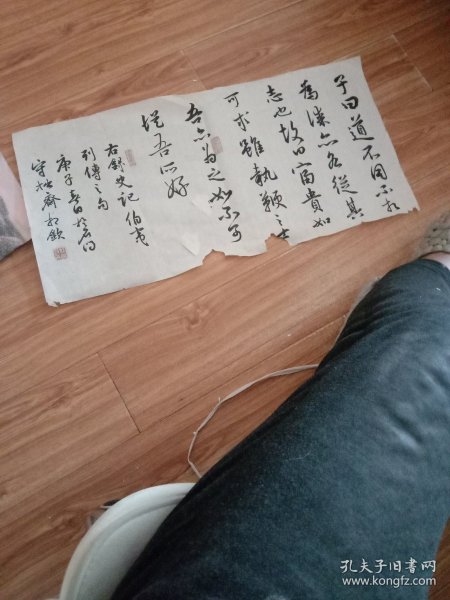 子曰道不同不相
為謀亦各從其
志也故曰富貴如
可求雖執鞭之士
吾亦為之如不可
從吾所好
右錄史記伯夷
列傳之句
庚子春日於
守拙齋
孔夫子旧书网
www.kongfz.com